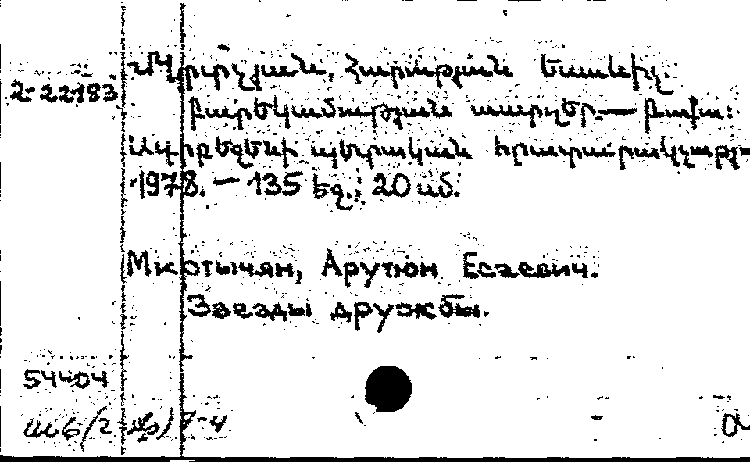 Մկրտչյան, Հարություն Եսաևիչ.
2-22183
բարեկամության աստղեր.— Բաքու:
Ադրբեջենի պետական հրատարակչությ
1978. — 135 էջ.; 20 սմ.
Мкртычян, Арутюн Есаевич.
Звезды дружбы.
54404